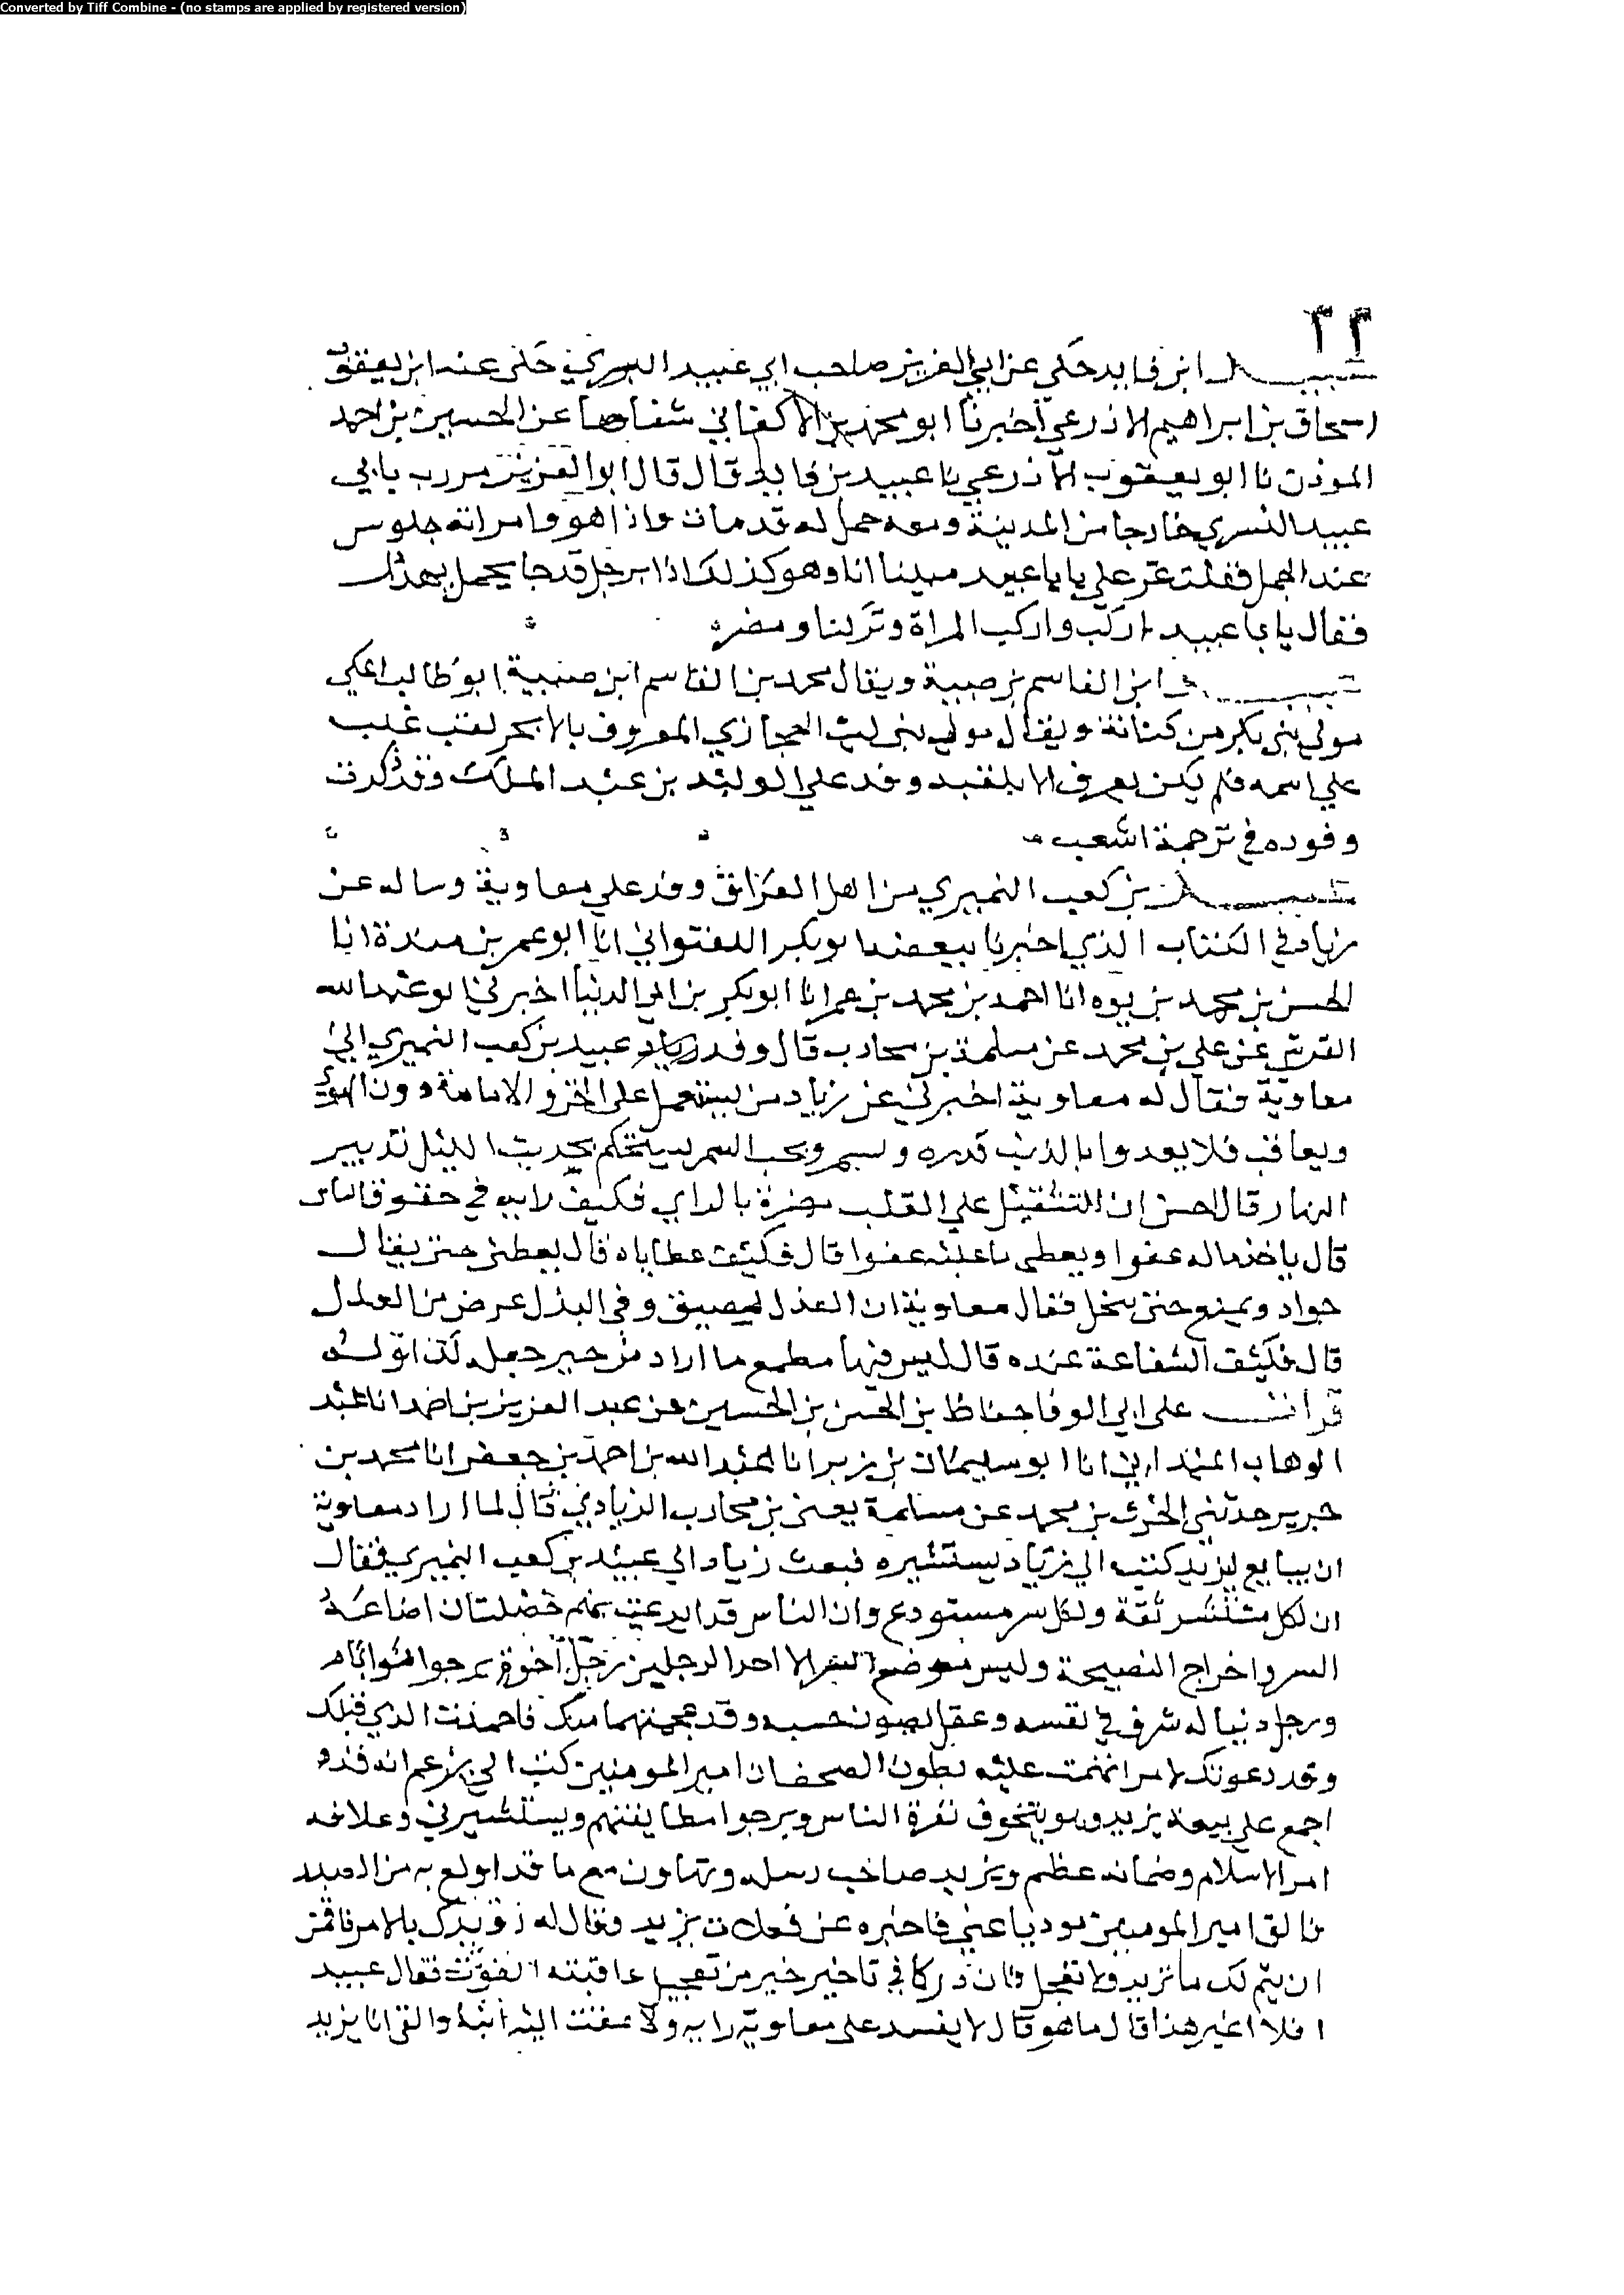 Converted by Tiff Combine - (no stamps are applied by registered version)
٢٢
عبيد ابن فايد حكى عن ابي العزيز صاحب ابي عبيد البسري حكى عنه ابن يعقوب
اسحاق بن ابراهيم الاذرعي اخبرنا ابو محمد بن الاكفاني شفاها عن الحسين بن احمد
الموذن نا ابو يعقوب الاذرعي نا عبيد بن فايد قال قال ابو العزيز مررت بابي
عبيد البسري خارجا من المدينة ومعه حمل له قد مات واذا هو وامراته جلوس
عند الحمل فقلت عز علي يابا عبيد فبينا انا وهو كذلك اذا برجل قد جا بحمل بهذل
فقال يابا عبيد اركب واركب المراة وتركنا ومضى
عبيد ابن القاسم بن صبية ويقال محمد بن القاسم ابن صبية ابو طالب المكي
مولى بني بكر من كنانة ويقال مولى بني ليث الحجازي المعروف بالابجر لقب غلب
على اسمه فلم يكن يعرف الا بلقبه وفد على الوليد بن عبد الملك وقد ذكرت
وفوده في ترجمة اشعب
عبيد بن كعب النميري من اهل العراق وفد على معاوية وساله عن
زياد في الكتاب الذي اخبرنا ببعضه ابو بكر اللفتواني انا ابو عمر بن مندة انا
الحسن بن محمد بن يوه انا احمد بن محمد بن عمر انا ابو بكر بن ابي الدنيا اخبرني ابو عبد الله
القرشي عن علي بن محمد عن مسلمة بن محارب قال وفد زياد عبيد بن كعب النميري الى
معاوية فقال له معاوية اخبرني عن زياد من يستعمل على الخبر والامانة دون الهوى
ويعاقب فلا يعدوا بالذنب قدره ويسمر ويحب السمر ليستحكم بحديث الليل تدبير
النهار قال احسن ان التثقيل على القلب مضرة بالراي فكيف رايه في حقوق الناس
قال ياخذ ماله عفوا ويعطي ما عليه عفوا قال فكيف عطاياه قال يعطي حتى يقال
جواد ويمنع حتى بخل فقال معاوية ان العدل لمضيق وفي البذل عوض من العدل
قال فكيف الشفاعة عنده قال ليس فيها مطمع ما اراد من خير جعله لك او له
قرات على ابي الوفا حفاظ بن الحسن بن الحسين عن عبد العزيز بن احمد انا عبد
الوهاب الميداني انا ابو سليمان بن زبر انا عبد الله بن احمد بن جعفر انا محمد بن
جرير حدثني الحرث بن محمد عن مسلمة يعني بن محارب الزيادي قال لما اراد معاوية
ان يبايع ليزيد كتب الى زياد يستشيره فبعث زياد الى عبيد بن كعب النميري فقال
ان لكل مستشير ثقة ولكل سر مستودع وان الناس قد ابدعت بهم خصلتان اضاعة
السر واخراج النصيحة وليس موضع السر الا احد الرجلين رجل اخرة يرجوا ثوابا
ورجل دنيا له شرف في نفسه وعقل يصون حسبه وقد عجمتهما منك فاحمدت الذي قبلك
وقد دعوتك لامر اتهمت عليه بطون الصحف ان امير المومنين كتب الي يزعم انه قد
اجمع على بيعة يزيد وهو يتخوف نفرة الناس ويرجوا مطابقتهم ويستشيرني وعلاقه
امر الاسلام وضمانه عظيم ويزيد صاحب رسله وتهاون مع ما قد اولع به من الصيد
فالق امير المومنين موديا عني فاخبره عن فعلات يزيد وقال له رويدك بالامر فاقمن
ان يتم لك ما تريد ولا تعجل فان دركا في تاخير خير من تعجيل عاقبته الفوت فقال عبيد
افلا غير هذا قال ما هو قال لا يفسد على معاوية رايه ولا تمقت اليه ابنه والقى انا يزيد